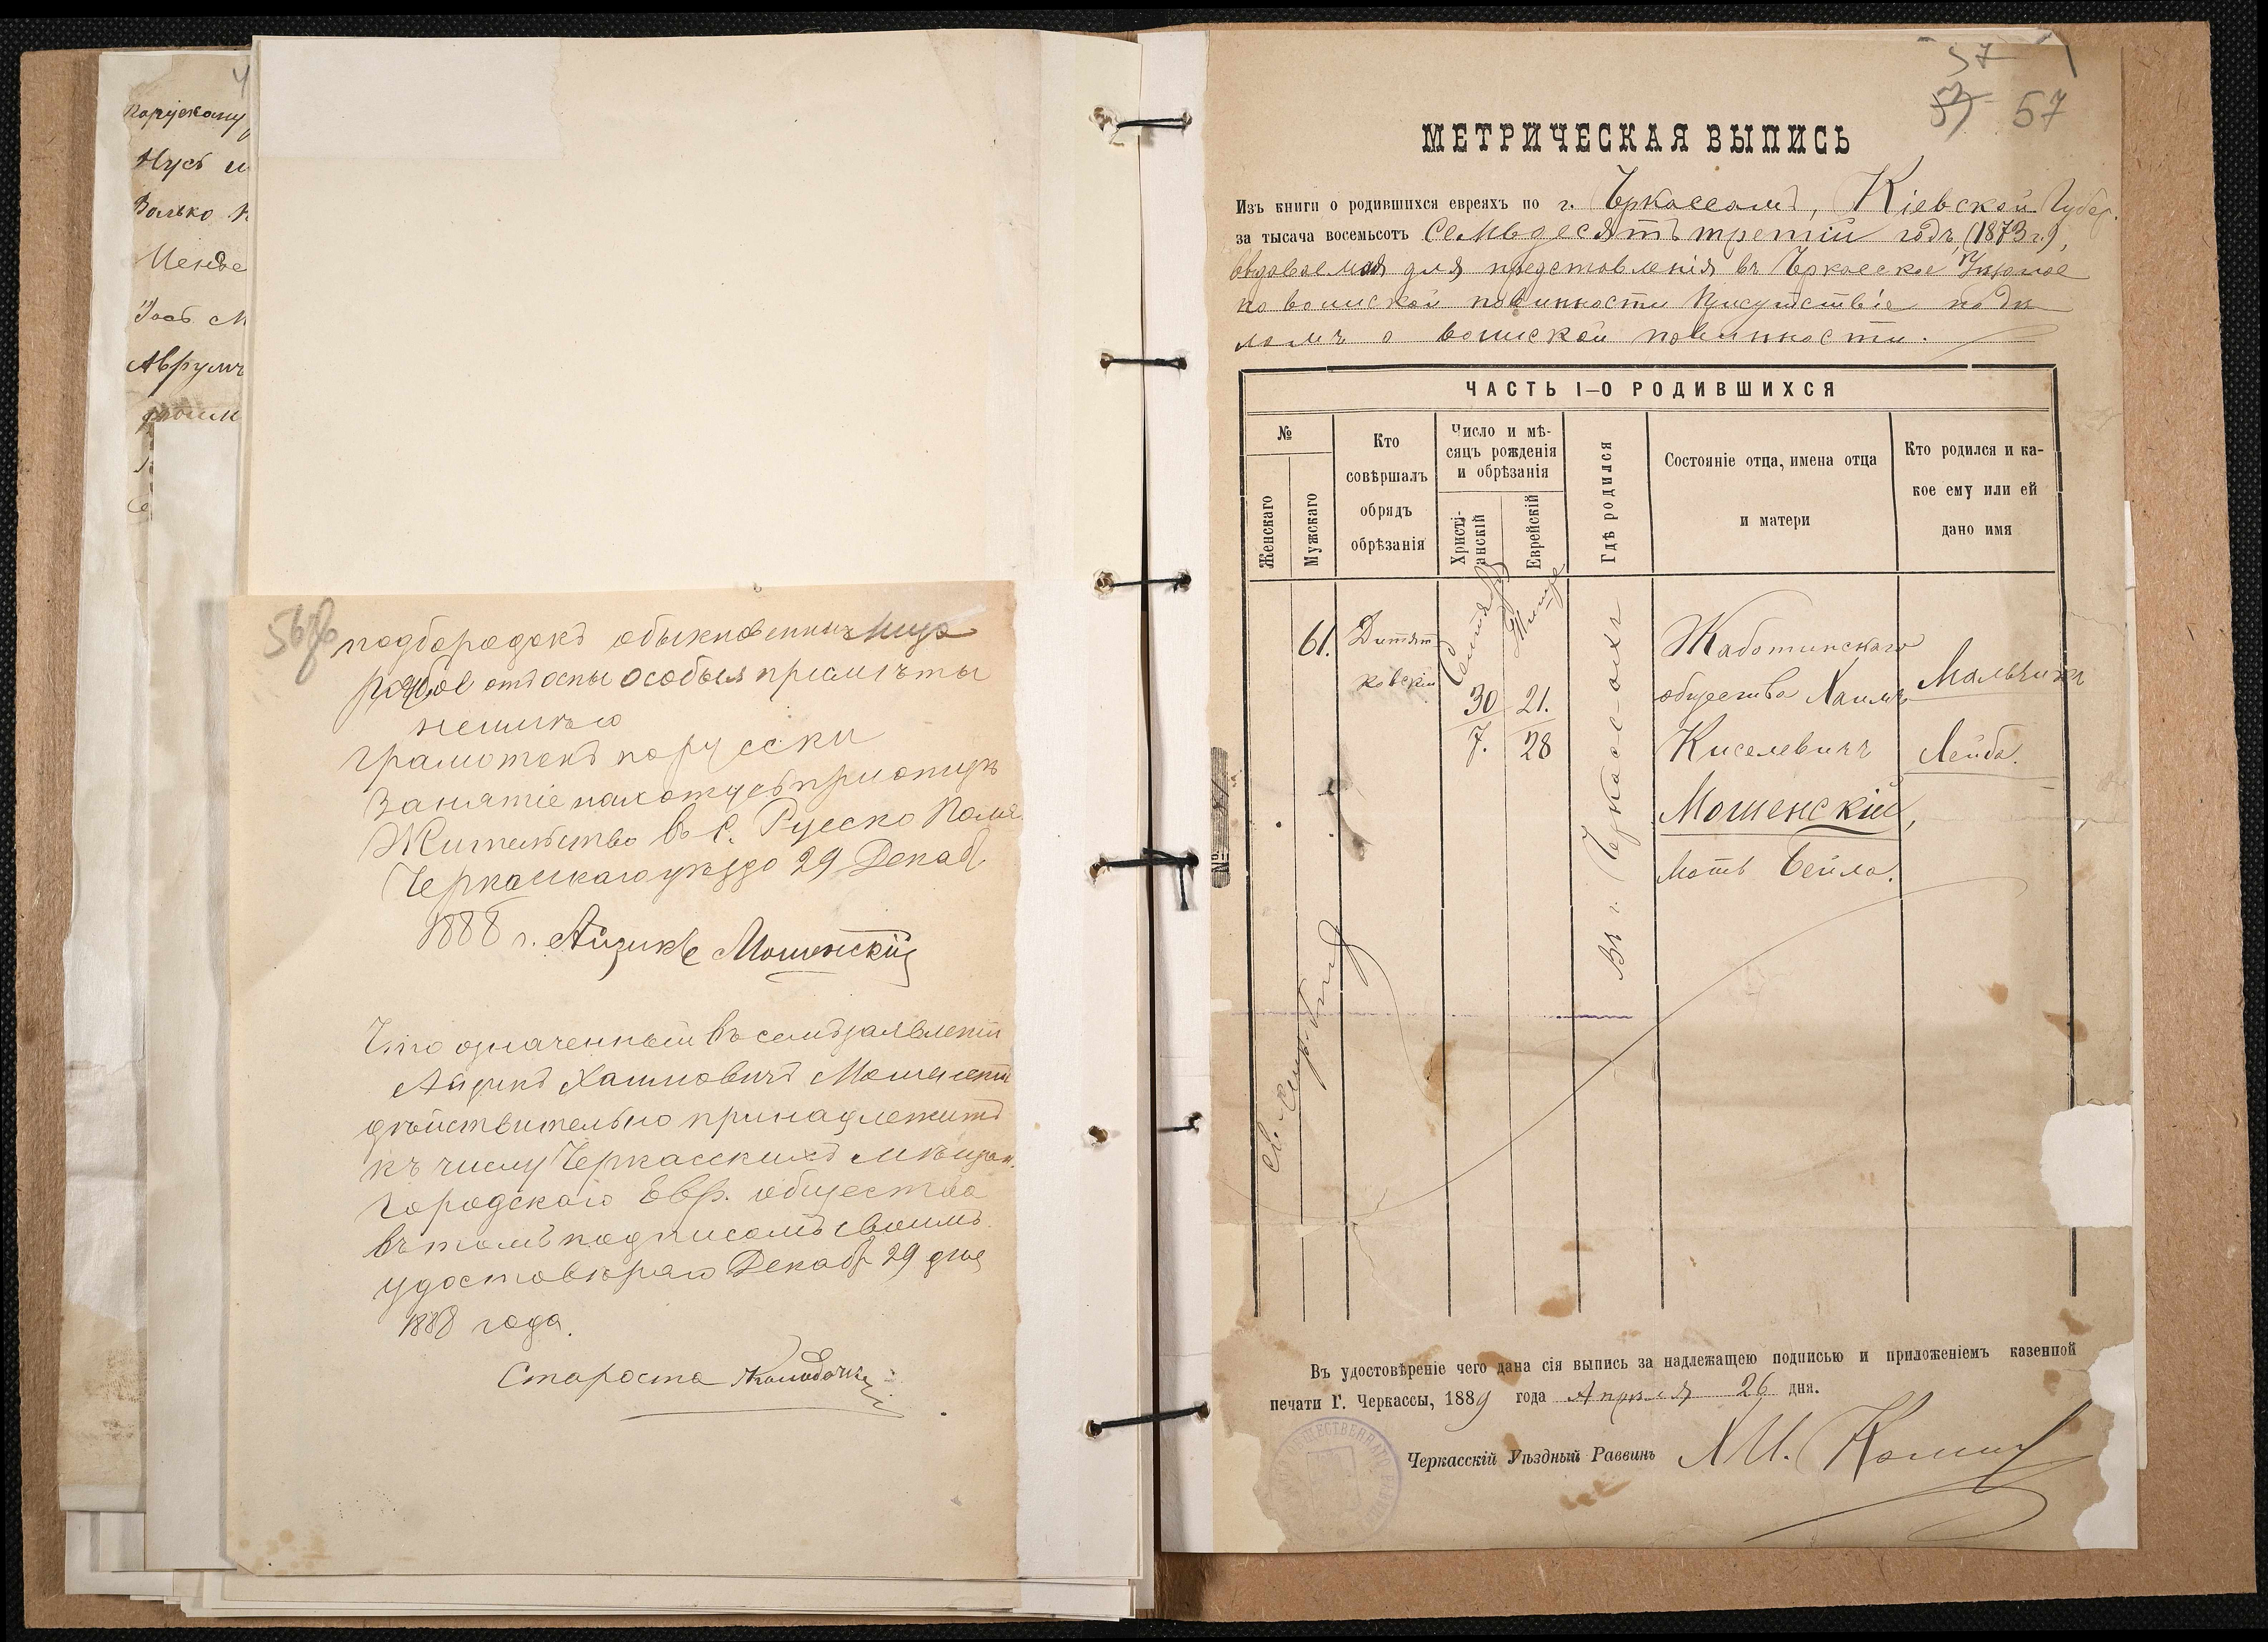 Нусъ и
Волько
Аврумъ
56об
подбородокъ обыкновенный лице
рябое отъ оспы особыя примѣты
неимѣю
Грамотенъ порусски
Занятіе нахожусь при отцѣ
Жительство въ С. Русско Поля.
Черкасскаго уѣзда 29 Декаб
1888 г. Айзикъ Мошенскій
Что означенный въ семъ заявленіи
Айзикъ Хаимовичъ Мошенскій
дѣйствительно принадлежитъ
къ числу Черкасскихъ мѣщан.
городскаго Евр. общества
въ томъ подписомъ своимъ
удостовѣряю Декабр 29 дня
1888 года.
Староста
37
57
57
МЕТРИЧЕСКАЯ ВЫПИСЬ
Изъ книги о родившихся евреяхъ по г. Черкассамъ, Кіевской Губер.
за тысяча восемьсотъ семьдесятъ третій годъ, (1873 г.),
выдаваемая для представленія въ Черкасское Уѣздное
по воинской повинности Присутствіе по дѣ
ламъ о воинской повинности.
ЧАСТЬ I–О РОДИВШИХСЯ
№
Женскаго
Мужскаго
Кто
совѣршалъ
обрядъ
обрѣзанія
Число и мѣ-
сяцъ рожденія
и обрѣзанія
Христі-
анскій
Еврейскій
Гдѣ родился
Состояніе отца, имена отца
и матери
Кто родился и ка-
кое ему или ей
дано имя
61.
Дитят
ковскій
Сентября
Тишре
30
7.
21.
28
Въ г. Черкассахъ
Жаботинскаго
общества Хаимъ
Киселевичъ
Мошенскій,
Мать Бейла.
Мальчикъ
Лейба.
№
Въ удостовѣреніе чего дана сія выпись за надлежащею подписью и приложеніемъ казенной
печати Г. Черкассы, 1889 года Апрѣля 26 дня.
Черкасскій Уѣздный Раввинъ
ОБЩЕСТВЕННАГО